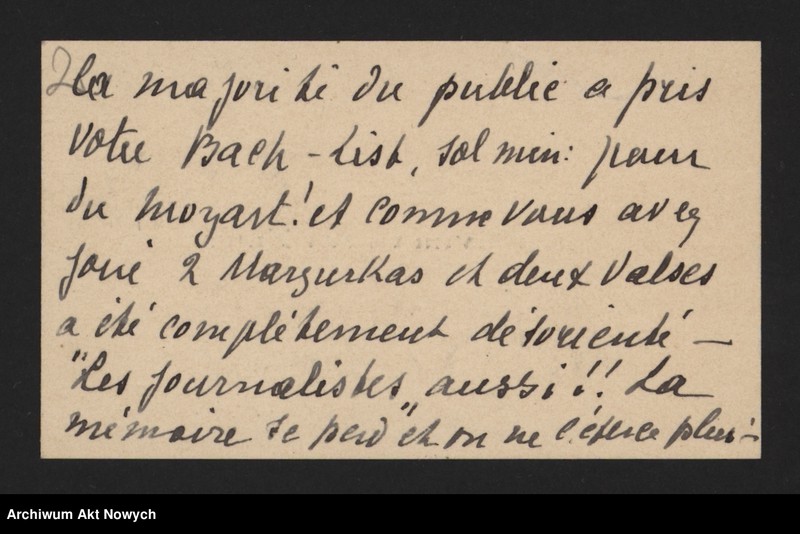 2 La majorité du public a pris
votre Bach - List, sol min: pour
du Mozart! et comme vous avez
joué 2 Mazurkas et deux Valses
a été complétement désorienté —
"Les journalistes, aussi!! La
mémoire se perd" et on ne l'éxerce plus! -
Archiwum Akt Nowych